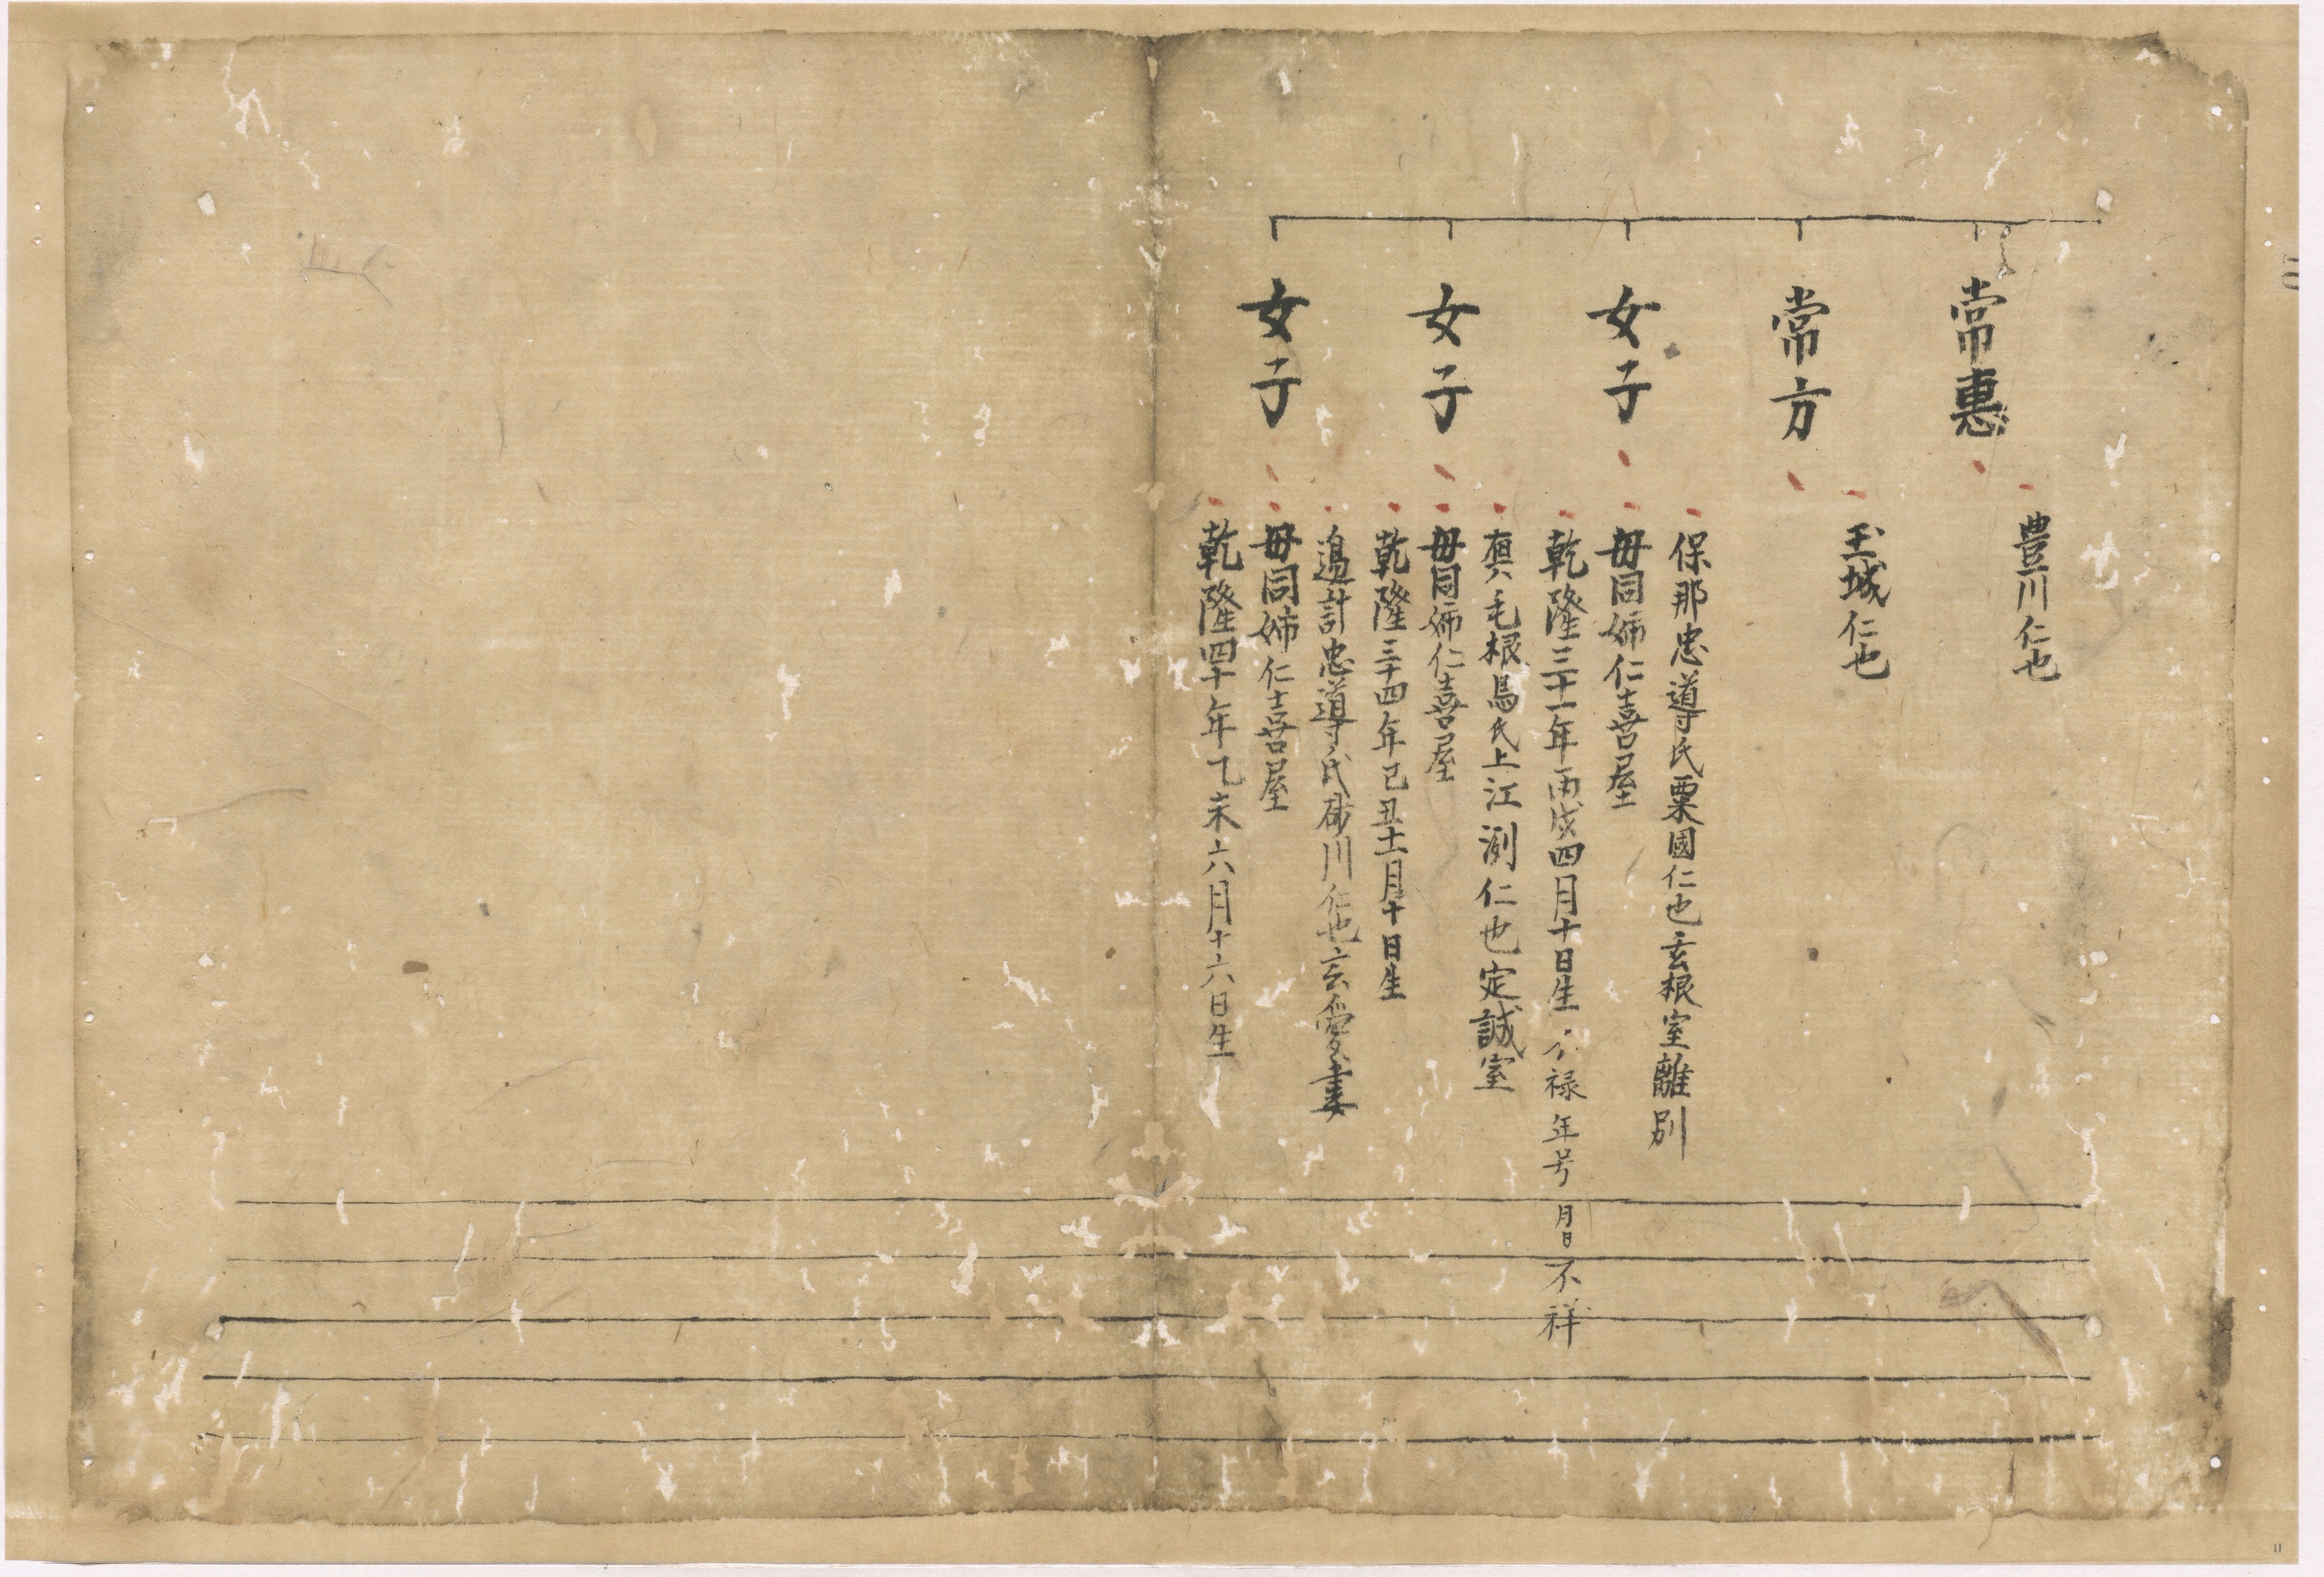 常惠
豊川仁也
常方
玉城仁也
女子
保那忠導氏粟國仁也玄根室離別
毋同姉仁喜屋
乾隆三十一年丙戌四月十日生
不禄年号月日不祥
女子
真毛根馬氏上江洌仁也定誠室
毋同姉仁喜屋
乾隆三十四年己丑十一月十日生
女子
邉計忠導氏砂川仁也玄愛妻
毋同姉仁喜屋
乾隆四十年乙未六月十六日生
11